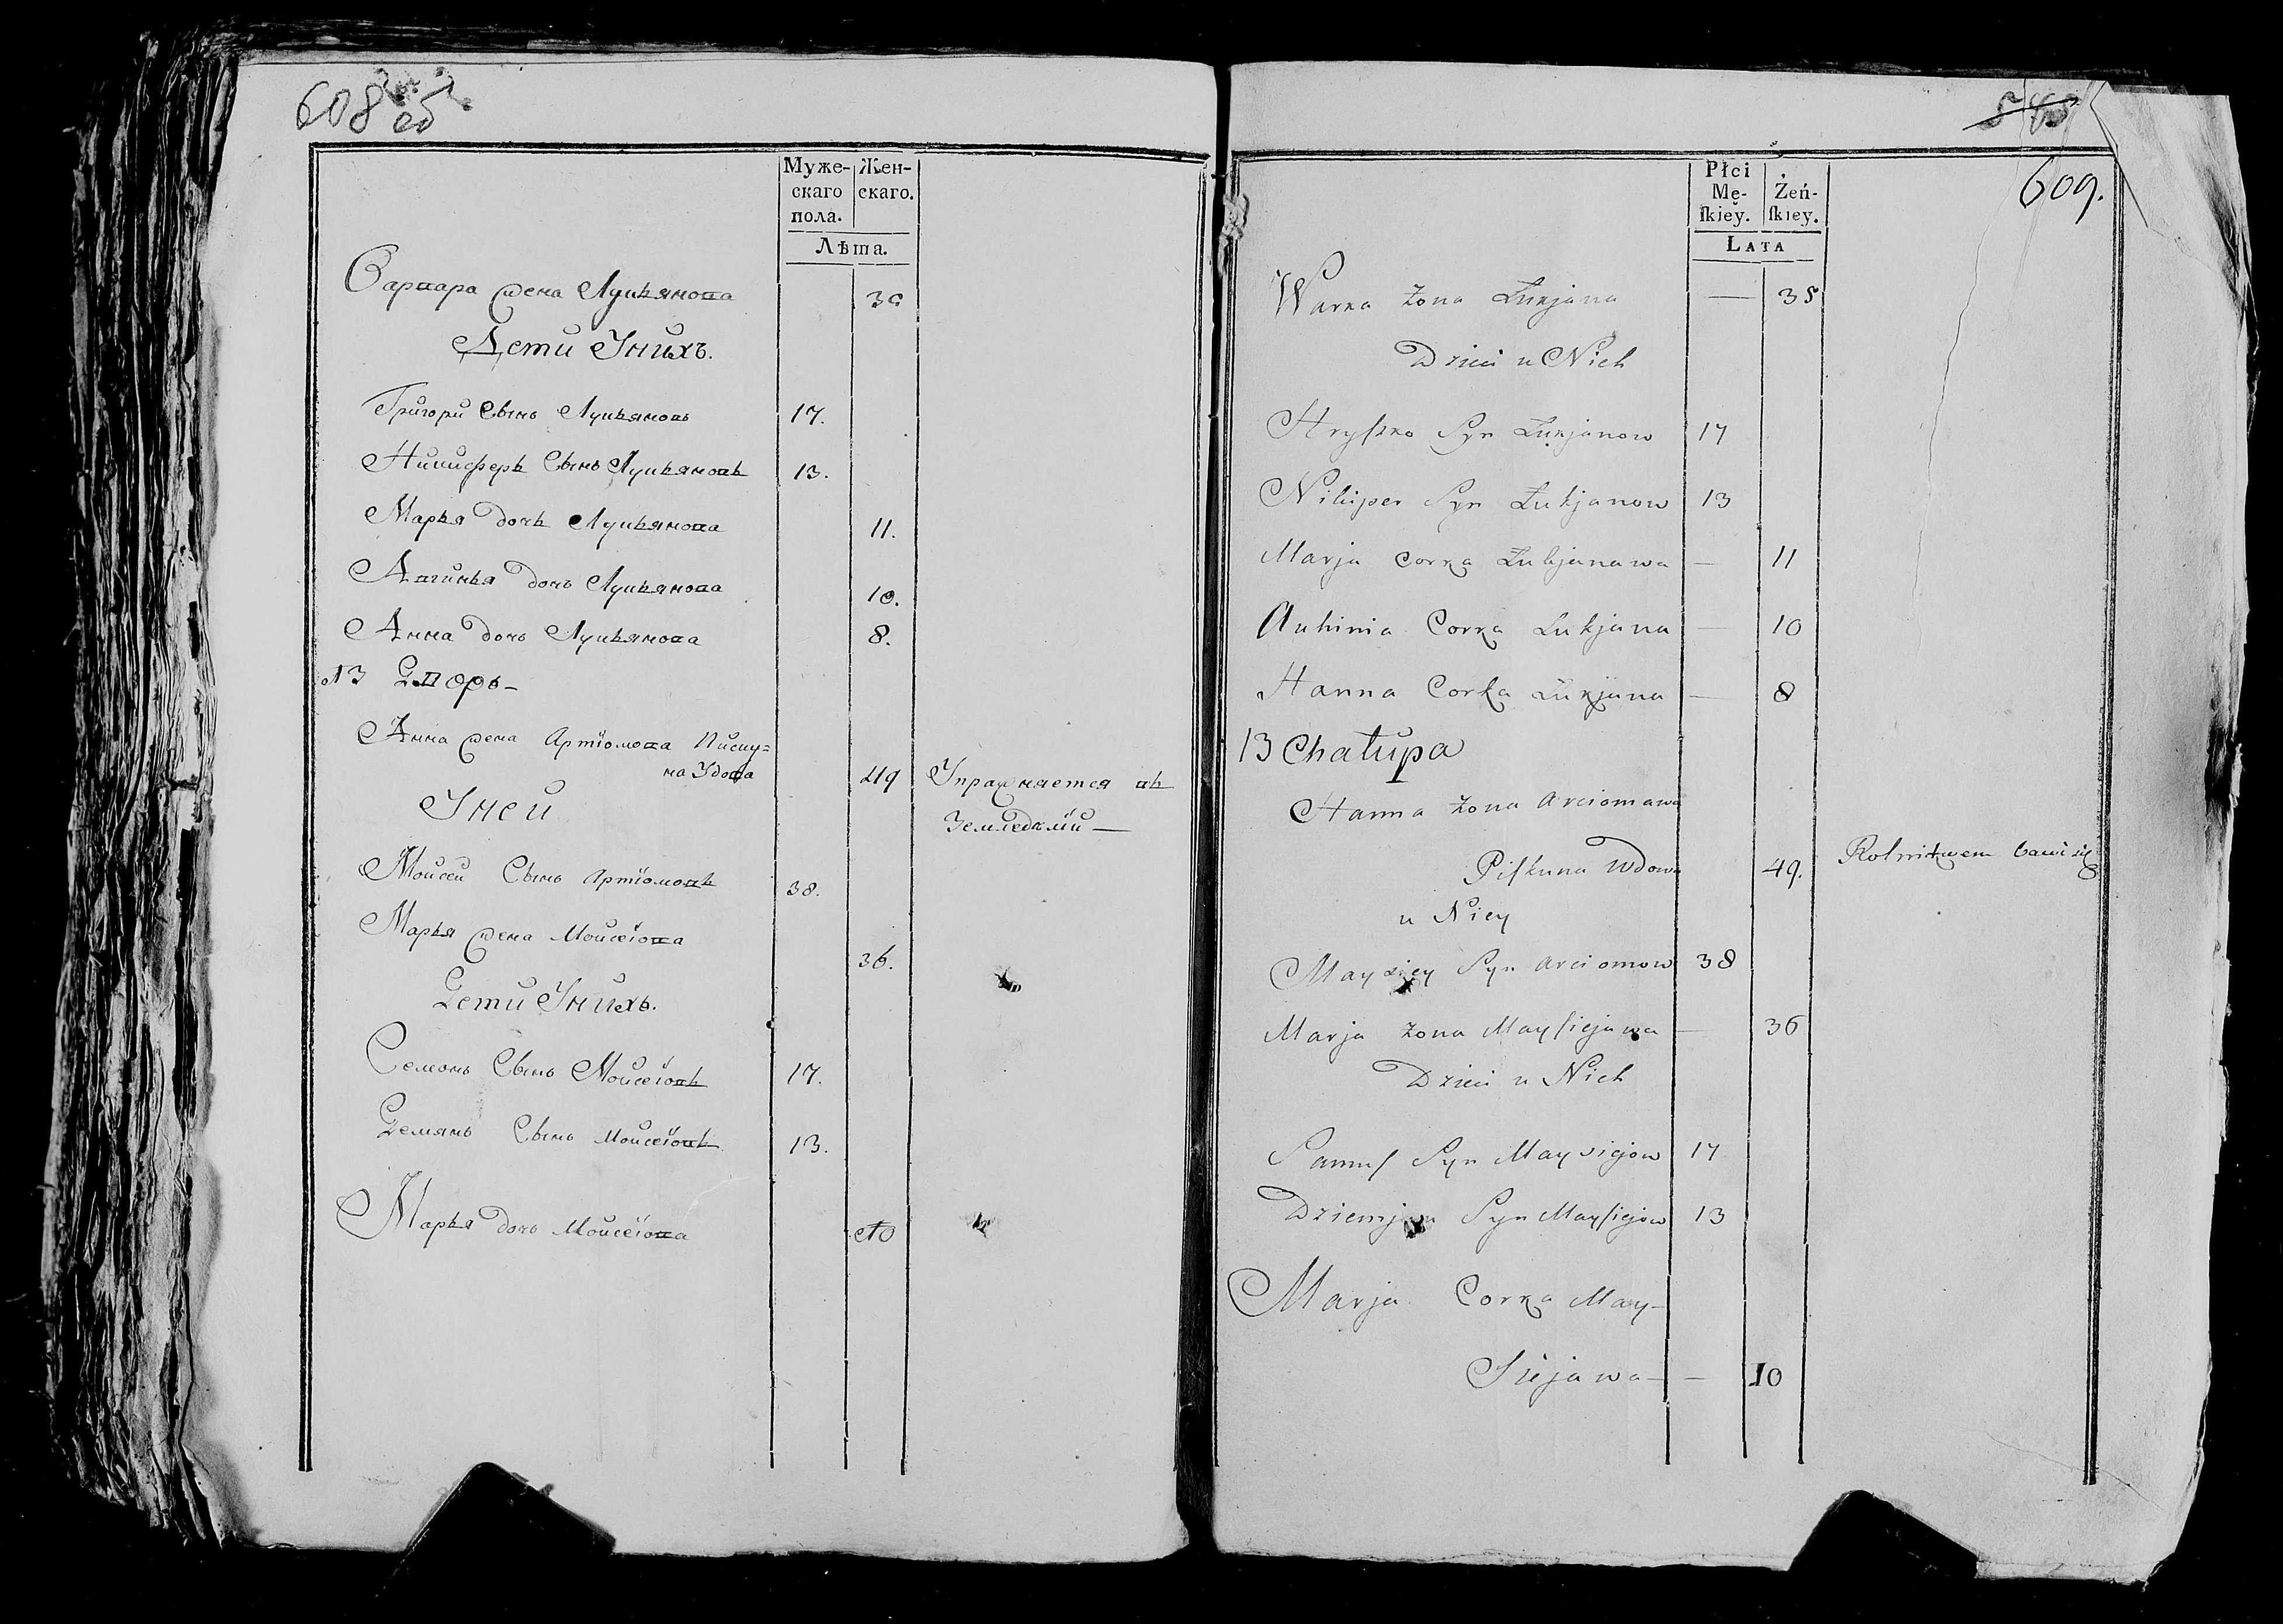 608 об
Муже-
скаго
пола.
Жен-
скаго.
Лѣта.
Варвара жена Лукьянова
Дети Унихъ.
Григори Сынъ Лукьяновъ 17.
Никиферъ Сынъ Лукьяновъ 13.
Марья дочь Лукьянова 11.
Авгинья дочь Лукьянова 10.
Анна дочь Лукьянова 8.
13 Дворъ-
Анна жена Артіомова Писку=
на Удова 49 Упражняется въ
Уней Земледѣліи —
Мойсей Сынъ Артіомовъ 38.
Марья жена Мойсеіова 36.
Дети Унихъ.
Семонъ Сынъ Мойсеіовъ 17.
Демянъ Сынъ Мойсеіовъ 13.
Марья дочь Мойсеіова 10
609.
Płci
Mę-
ſkiey.
Żeń-
ſkiey.
LATA
Warka Żona Łukjana — 38
Dzieci u Nich
Hryſzko Syn Łukjanow 17
Nikiper Syn Łukjanow 13
Marja Corka Łukjanawa — 11
Auhinia Corka Łukjana — 10
Hanna Corka Łukjana — 8
13 Chałupa
Hanna Żona Arciomawa
Piſkuna Wdowa 49. Rolnitwem bawi się
u Niey
Mayziey Syn Arciomow 38
Marja Żona Mayſiejawa — 36
Dzieci u Nich
Syn Maysiejow 17
Dziemjan Syn Mayſiejow 13
Marja Corka May-
Siejawa — — 10